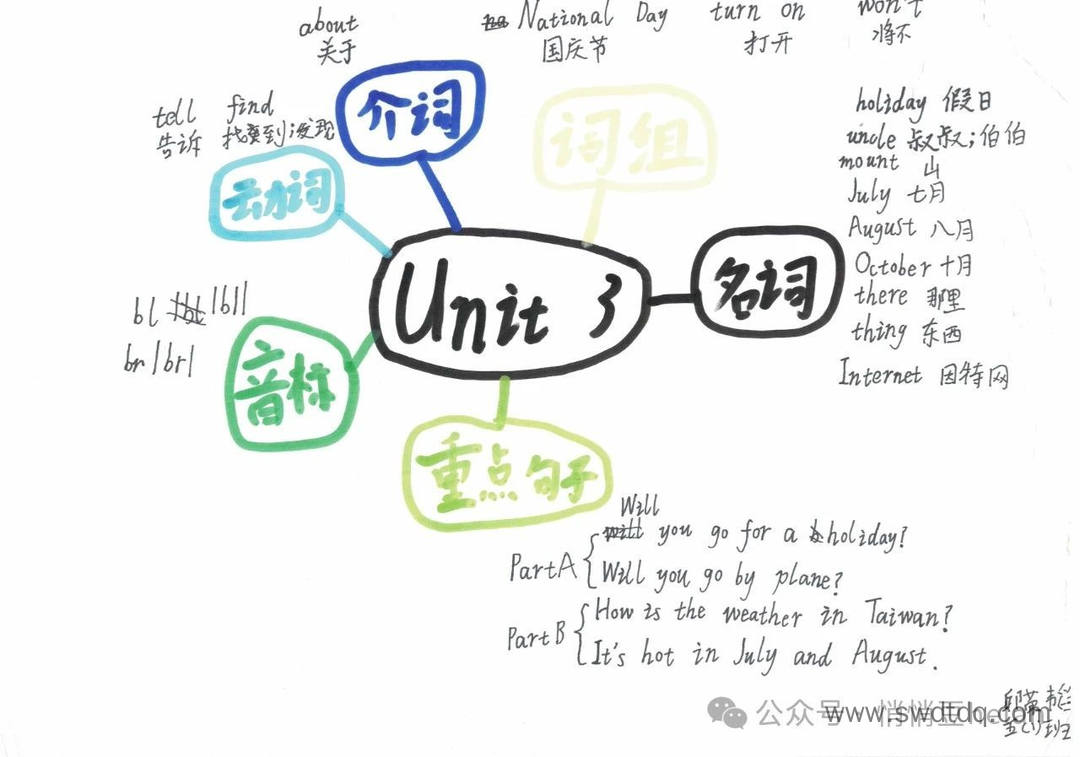 about
关于
National Day
国庆节
turn on
打开
won't
将不
tell
告诉
find
找到;发现
介词
词组
动词
holiday 假日
uncle 叔叔;伯伯
mount 山
July 七月
August 八月
October 十月
there 那里
thing 东西
Internet 因特网
Unit 3
名词
bl |bl|
br |br|
音标
重点句子
Part A
Will you go for a holiday?
Will you go by plane?
Part B
How is the weather in Taiwan?
It's hot in July and August.
公众号
www.swdtdq.com